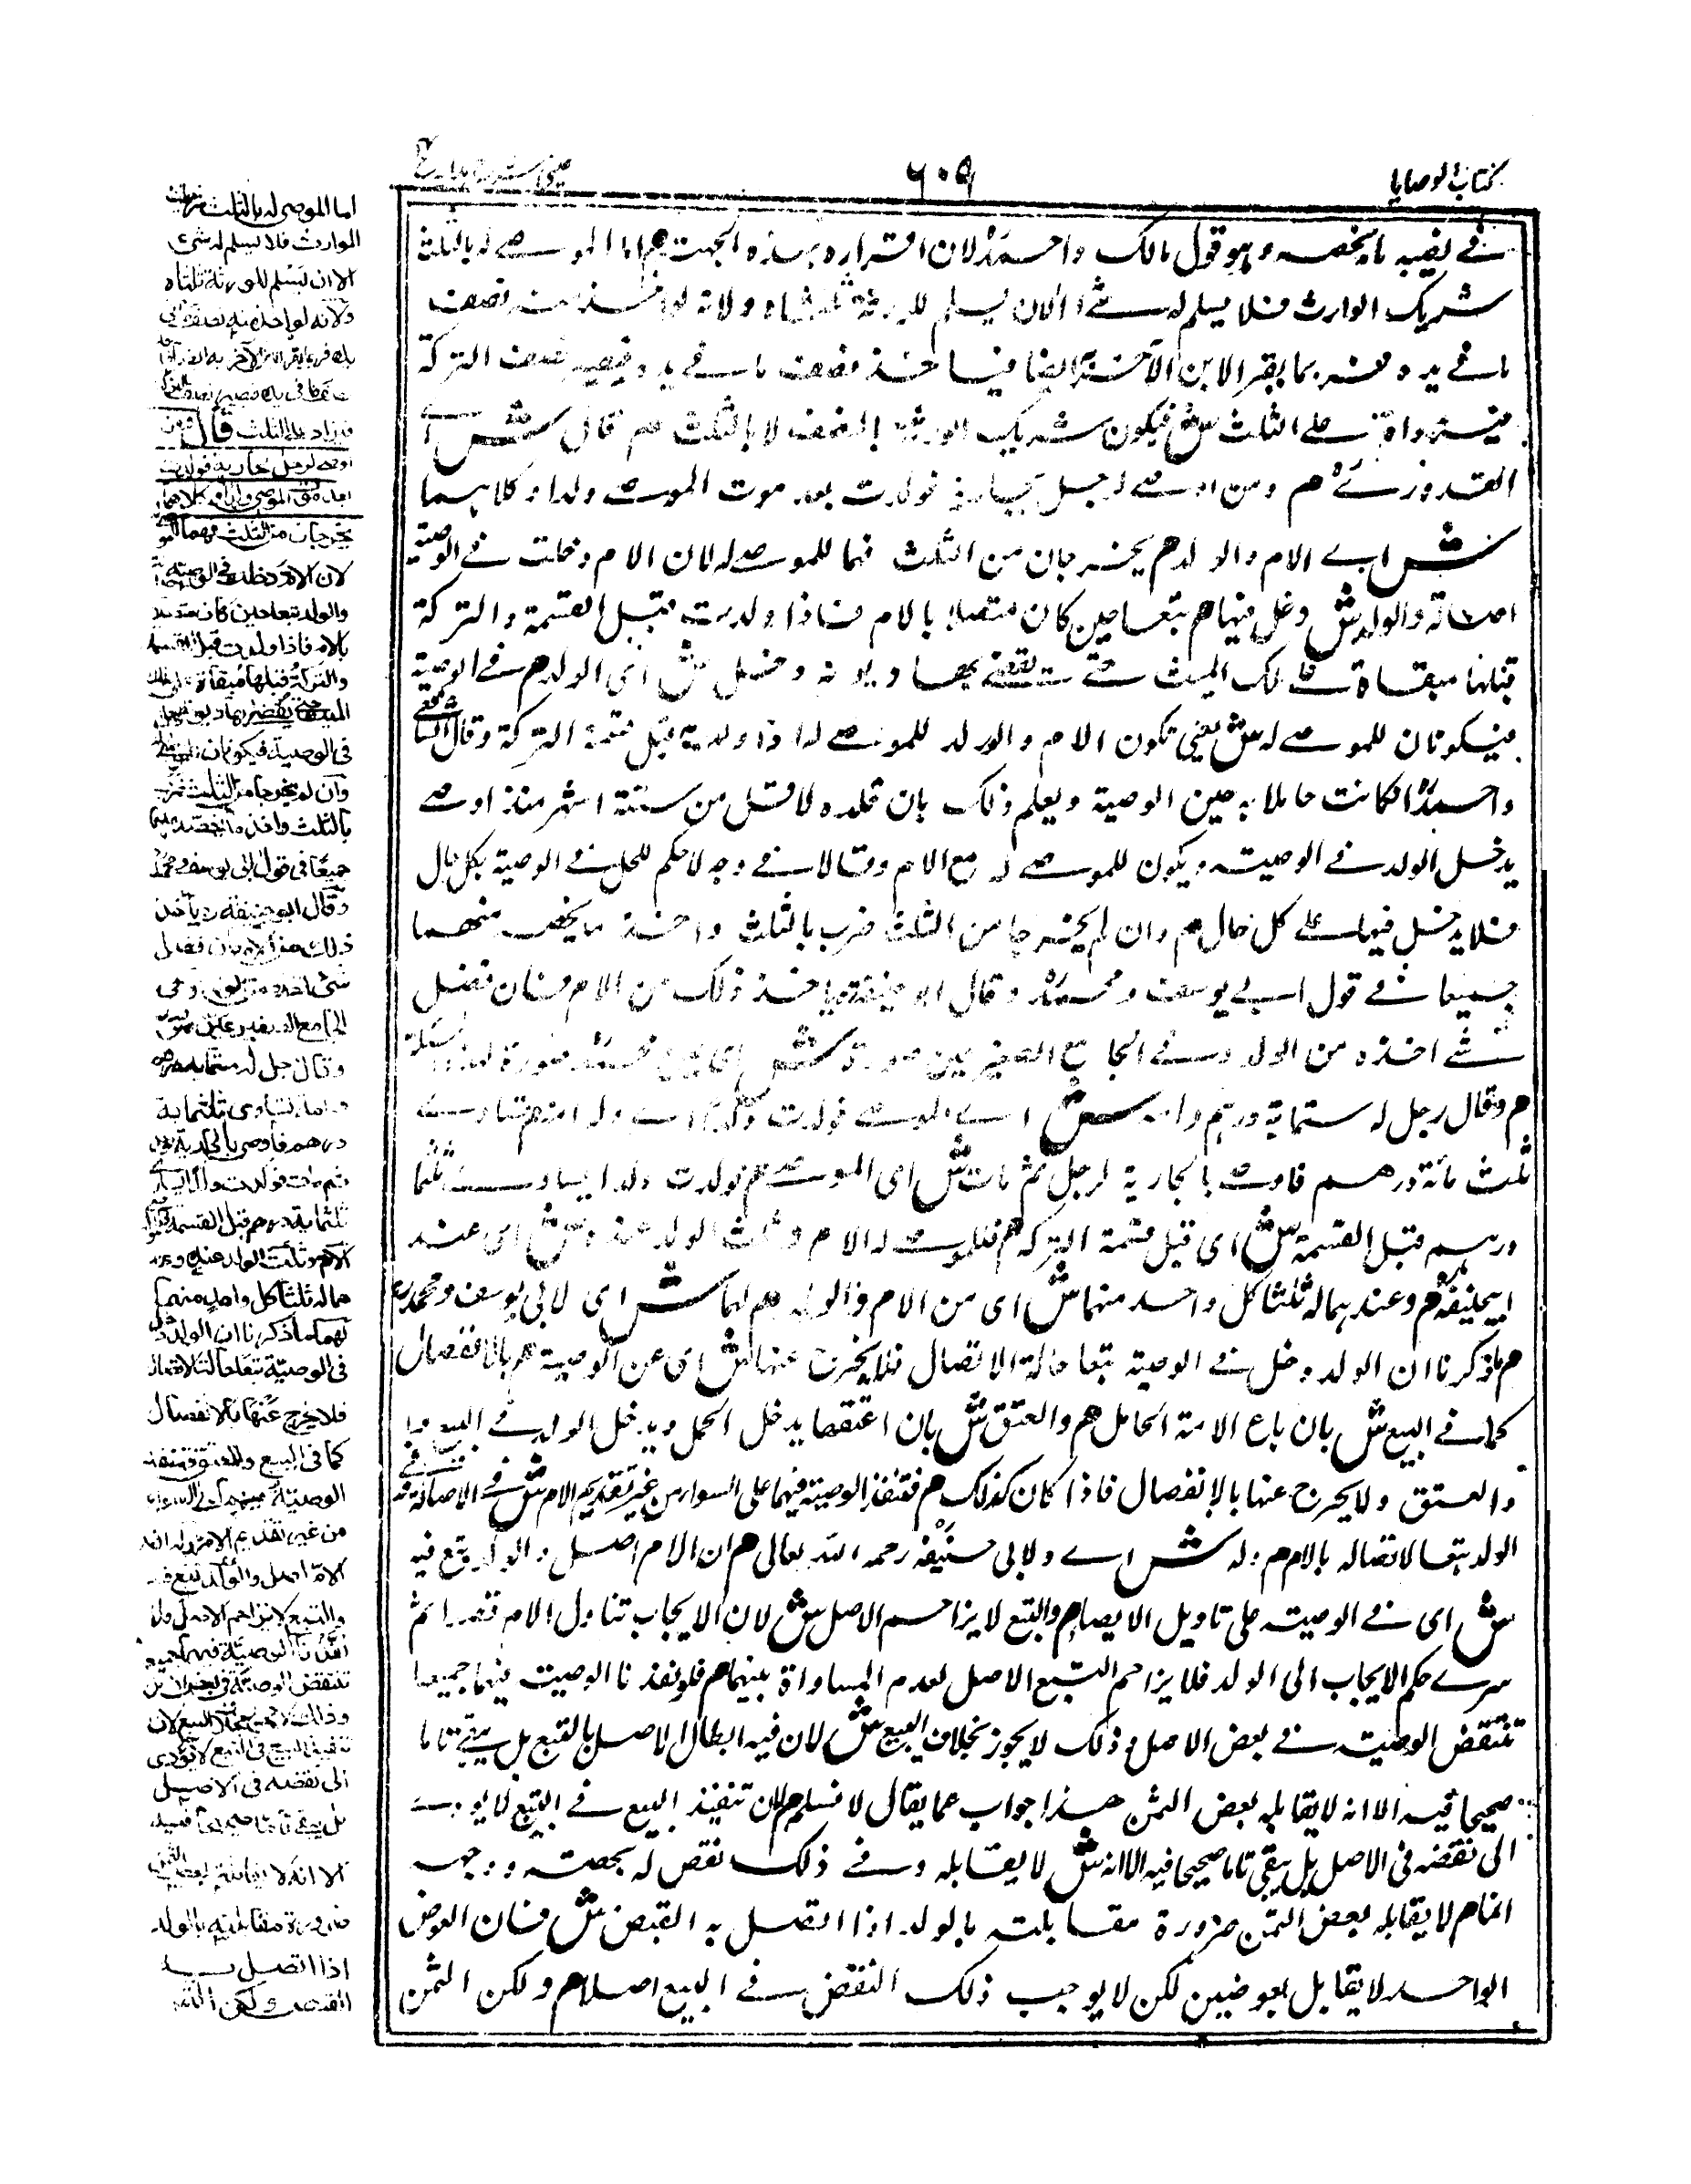 كتاب الوصايا
٦٠٩
في نصيبه ما يخصه وهو قول مالك واحمدؒ لان اقراره بهذه الجهت هم اما الموصے له بالثلث
شريك الوارث فلا يسلم له شئ الا ان يسلم للورثة ثلثاه ولانه لو اخذ منه نصف
ما فے يده فربما يقر الابن الآخر به ايضا فياخذ نصف ما فے يده فيصير نصف التركة
فيزداد علے الثلث ش فيكون شريك الورثة بالنصف لا بالثلث هم قال ش اے
القدورے هم ومن اوصے لرجل بجارية فولدت بعد موت الموصے ولدا وكلاهما
ش اے الام والولد هم يخرجان من الثلث فهما للموصے له لان الام دخلت فے الوصية
اصالة والولد ش دخل فيها هم تبعا حين كان متصلا بالام فاذا ولدت قبل القسمة والتركة
قبلها مبقاة علے ملك الميت حتے تقضے بها ديونه دخل ش اى الولد هم فے الوصية
فيكونان للموصے له ش يعنى تكون الام والولد للموصے له اذا ولدته قبل قسمة التركة وقال الشافعے
واحمدؒ ان كانت حاملا به حين الوصية ويعلم ذلك بان تلده لاقل من ستة اشهر منذ اوصے
يدخل الولد فے الوصية ويكون للموصے له مع الام وقالا فے وجه لا حكم للحمل فے الوصية بكل حال
فلا يدخل فيها علے كل حال هم وان لم يخرجا من الثلث ضرب بالثلث واخذ ما يخصه منهما
جميعا فے قول ابے يوسف ومحمدؒ وقال ابو حنيفةؒ ياخذ ذلك من الام فان فضل
شے اخذه من الولد وفے الجامع الصغير عين صورة ش
هم وقال رجل له ستمائة درهم وامة ش اے الموصے فولدت ولدا هم تساوے
ثلث مائة درهم فاوصے بالجارية لرجل ثم مات ش اى الموصے هم فولدت ولدا يساوے ثلثمائة
درهم قبل القسمة ش اى قبل قسمة التركة هم فللموصے له الام وثلث الولد عنده ش اى عند
ابيحنيفةؒ هم وعندهما له ثلثا كل واحد منهما ش اى من الام والولد هم لهما ش اى لابى يوسف ومحمدؒ
هم ما ذكرنا ان الولد دخل فے الوصية تبعا حالة الاتصال فلا يخرج عنها ش اى عن الوصية هم بالانفصال
كما فے البيع ش بان باع الامة الحامل هم والعتق ش بان اعتقها يدخل الحمل ويدخل الولد فے البيع
والعتق ولا يخرج عنها بالانفصال فاذا كان كذلك هم فتنفذ الوصية فيهما على السواء من غير تقديم الام ش
الولد تبعا لاتصاله بالام هم وله ش اے ولابى حنيفه رحمه الله تعالى هم ان الام اصل والولد تبع فيه
ش اى فے الوصيته على تاويل الايصاء هم والتبع لا يزاحم الاصل ش لان الايجاب تناول الام قصدا ثم
سرے حكم الايجاب الى الولد فلا يزاحم التبع الاصل لعدم المساواة بينهما هم فلو نفذنا الوصيت فيهما جميعا
تنتقض الوصيته فے بعض الاصل وذلك لا يجوز بخلاف البيع ش لان فيه ابطال الاصل بالتبع بل يبقے تاما
صحيحا فيه الا انه لا يقابله بعض الثمن هذا جواب عما يقال لا نسلم هم لان تنفيذ البيع فے التبع لا يودے
الى نقضه فى الاصل بل يبقى تاما صحيحا فيه الا انه ش لا يقابله وفے ذلك نقص له بحصته ووجهه
انما هم لا يقابله بعض الثمن ضرورة مقابلته بالولد اذا اتصل به القبض ش فان العوض
الواحد لا يقابل بعوضين لكن لا يوجب ذلك النقض فے البيع اصلا هم ولكن الثمن
اما الموصى له بالثلث شريك
الوارث فلا يسلم له شئ
الا ان يسلم للورثة ثلثاه
ولانه لو اخذ منه نصف ما فى
يده فربما يقر الابن الآخر به
فيزداد على الثلث قال ومن
اوصى لرجل بجارية فولدت
بعد موت الموصى ولدا وكلاهما
يخرجان من الثلث فهما للموصى
لان الام دخلت فى الوصية
والولد تبعا حين كان متصلا
بالام فاذا ولدت قبل القسمة
والتركة قبلها مبقاة على ملك
الميت حتى يقضى بها ديونه
فى الوصية فيكونان
وان لم يخرجا من الثلث ضرب
بالثلث واخذ ما يخصه منهما
جميعا فى قول ابى يوسف ومحمد
وقال ابو حنيفة رح ياخذ
ذلك من الام فان فضل
شئ اخذه من الولد وفى
الجامع الصغير عين
وقال رجل له ستمائة درهم
وامة تساوى ثلثمائة
درهم فاوصى بالجارية
ثم مات فولدت ولدا يساوى
ثلثمائة درهم قبل القسمة
الام وثلث الولد عنده وعند
هما له ثلثا كل واحد منهما
لهما ما ذكرنا ان الولد دخل
فى الوصية تبعا حالة الاتصال
فلا يخرج عنها بالانفصال
كما فى البيع والعتق فتنفذ
الوصية فيهما على السواء
من غير تقديم الام وله ان
الام اصل والولد تبع فيه
والتبع لا يزاحم الاصل فلو
نفذنا الوصية فيهما جميعا
تنتقض الوصية فى بعض الاصل
وذلك لا يجوز بخلاف البيع لان
تنفيذ البيع فى التبع لا يؤدى
الى نقضه فى الاصل
بل يبقى تاما صحيحا فيه
الا انه لا يقابله بعض الثمن
ضرورة مقابلته بالولد
اذا اتصل به
القبض ولكن الثمن